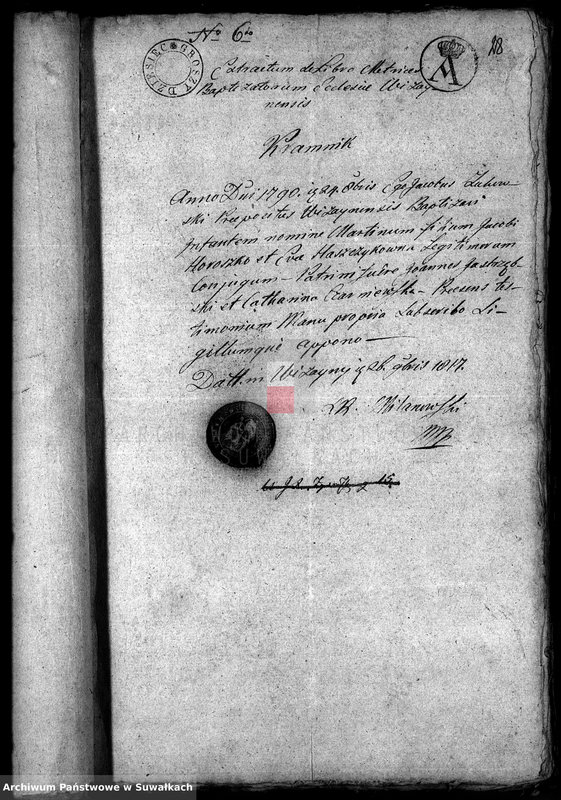 No 6to
28
DZIESIĘC GROSZY
W
Extractum de Libro Metrices
Baptizatorum Eclesiæ Wizay-
nensis
Kramnik
Anno Dni 1790. is 24. Obris Ego Jacobus Zukow-
ski Præpositus Wizaynensis Baptizavi
Infantem nomine Martinum filium Jacobi
Horoszko et Eva Haszczykowna Legitimorum
Conjugum - Patrini fuere Joannes Jastrzęb-
ski et Catharina Czarniewska - Præsens tes-
timonium Manu propria Subscribo Si-
gillumque appono
Datt. in Wizayny is 26. 9bris 1817.
Milanowski
mp
Archiwum Państwowe w Suwałkach